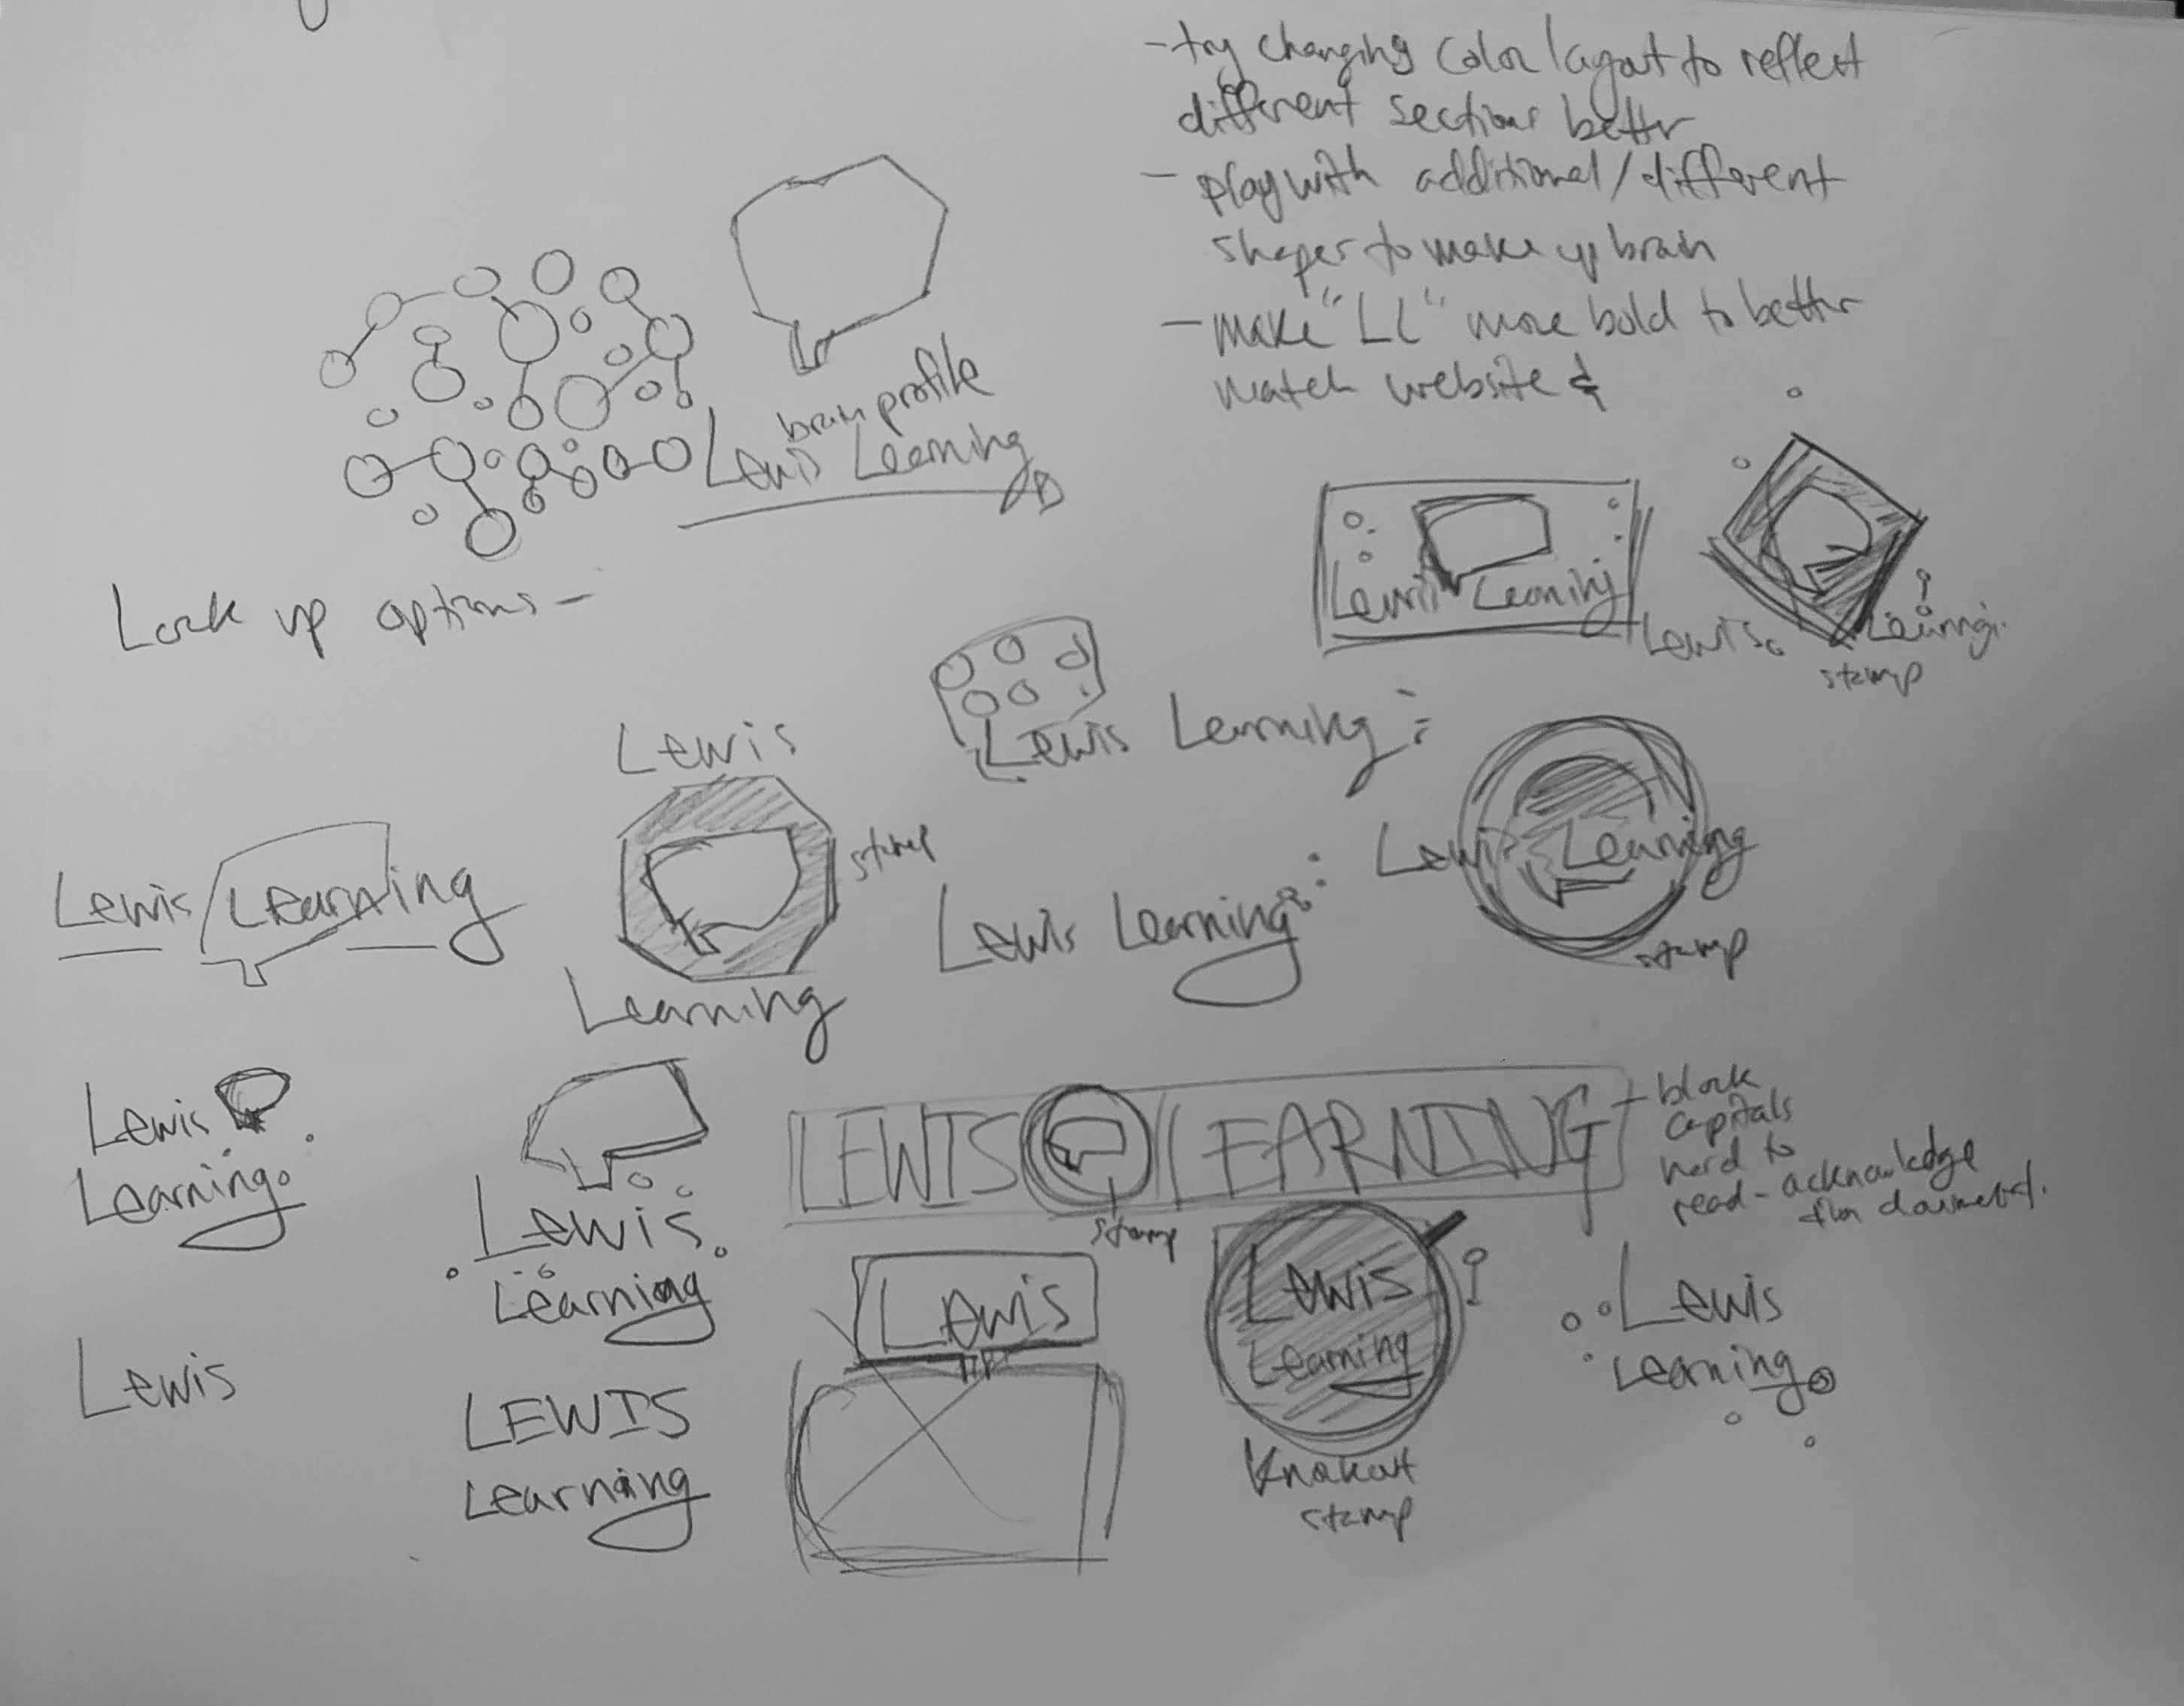 - try changing color layout to reflect
different sections better
- play with additional/different
shapes to make up brain
- make "LL" more bold to better
match website &
brain profile
Lewis Learning
Lock up options -
Lewis Learning
Lewis Learning
stamp
Lewis Learning
Lewis
stamp
Learning
Lewis Learning
Lewis Learning
stamp
Lewis Learning
Lewis
Learning
Lewis
Learning
LEWIS LEARNING
stamp
- block
capitals
hard to
read - acknowledge
Lewis
Lewis
Learning
Knokout
stamp
Lewis
Learning
Lewis
LEWIS
Learning